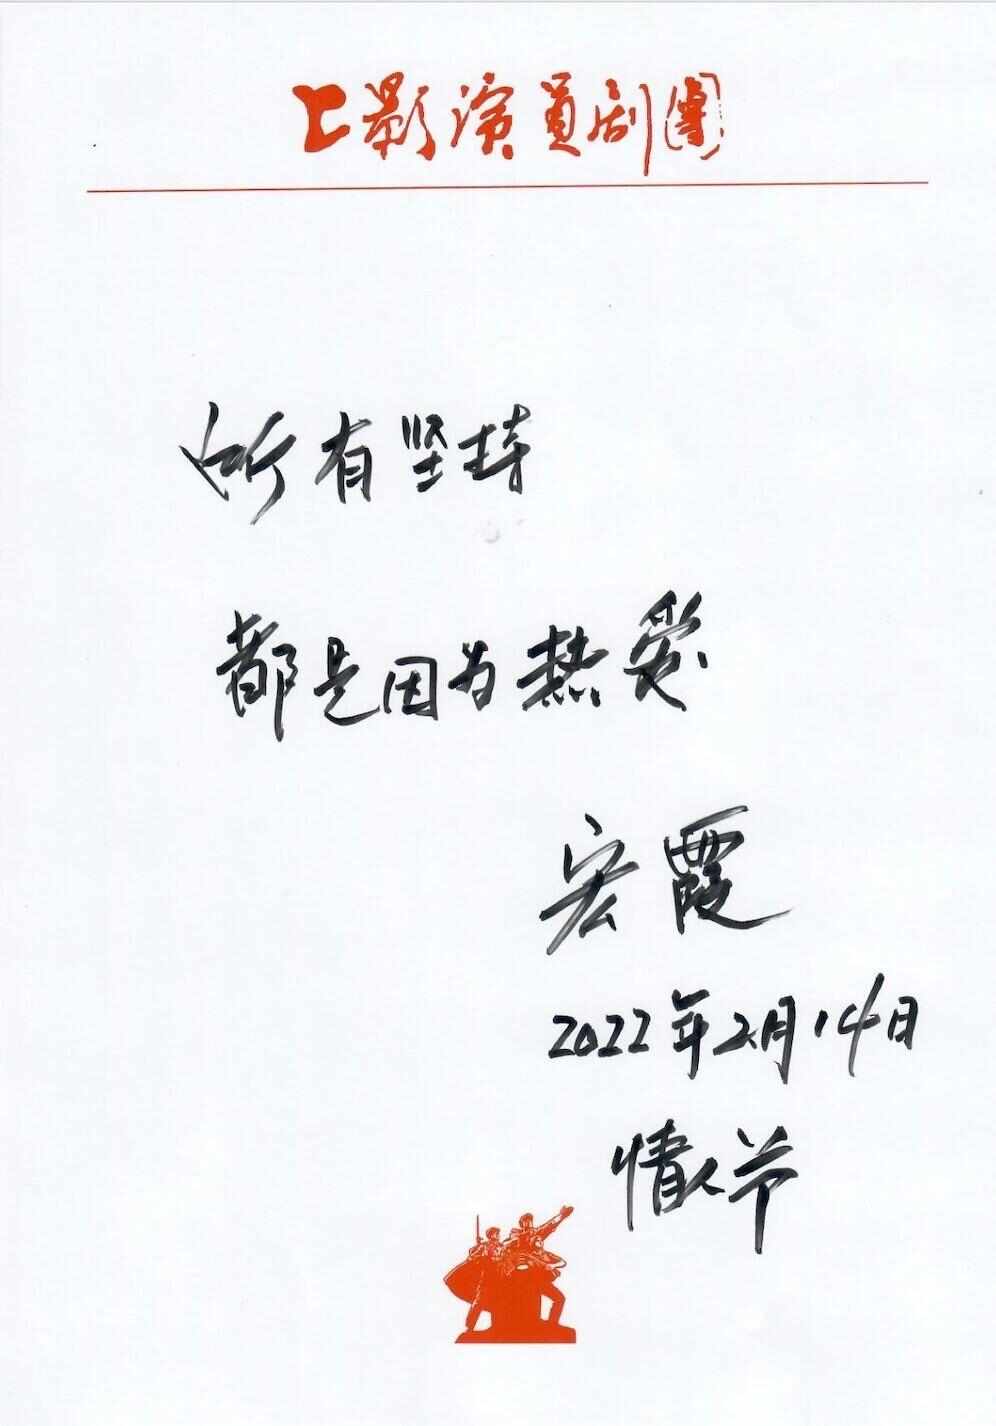 上影演员剧團
所有坚持
都是因为热爱
宏霞
2022年2月14日
情人节